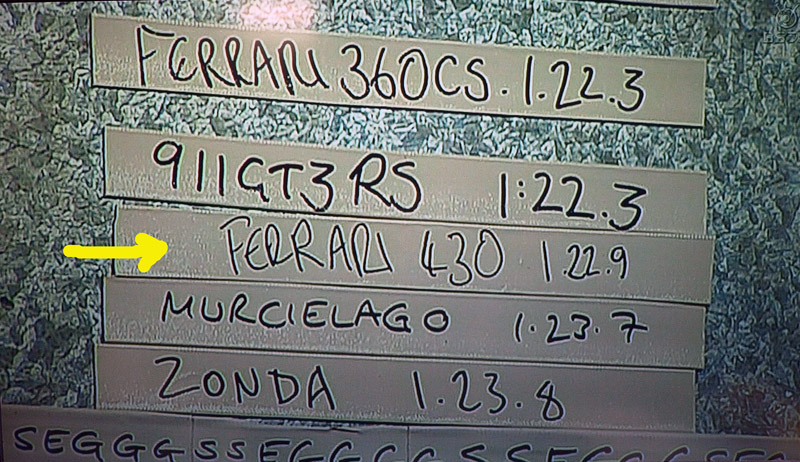 FERRARI 360CS. 1.22.3
911GT3 RS 1:22.3
FERRARI 430 1.22.9
MURCIELAGO 1.23.7
ZONDA 1.23.8
SEGGGSSEGGG